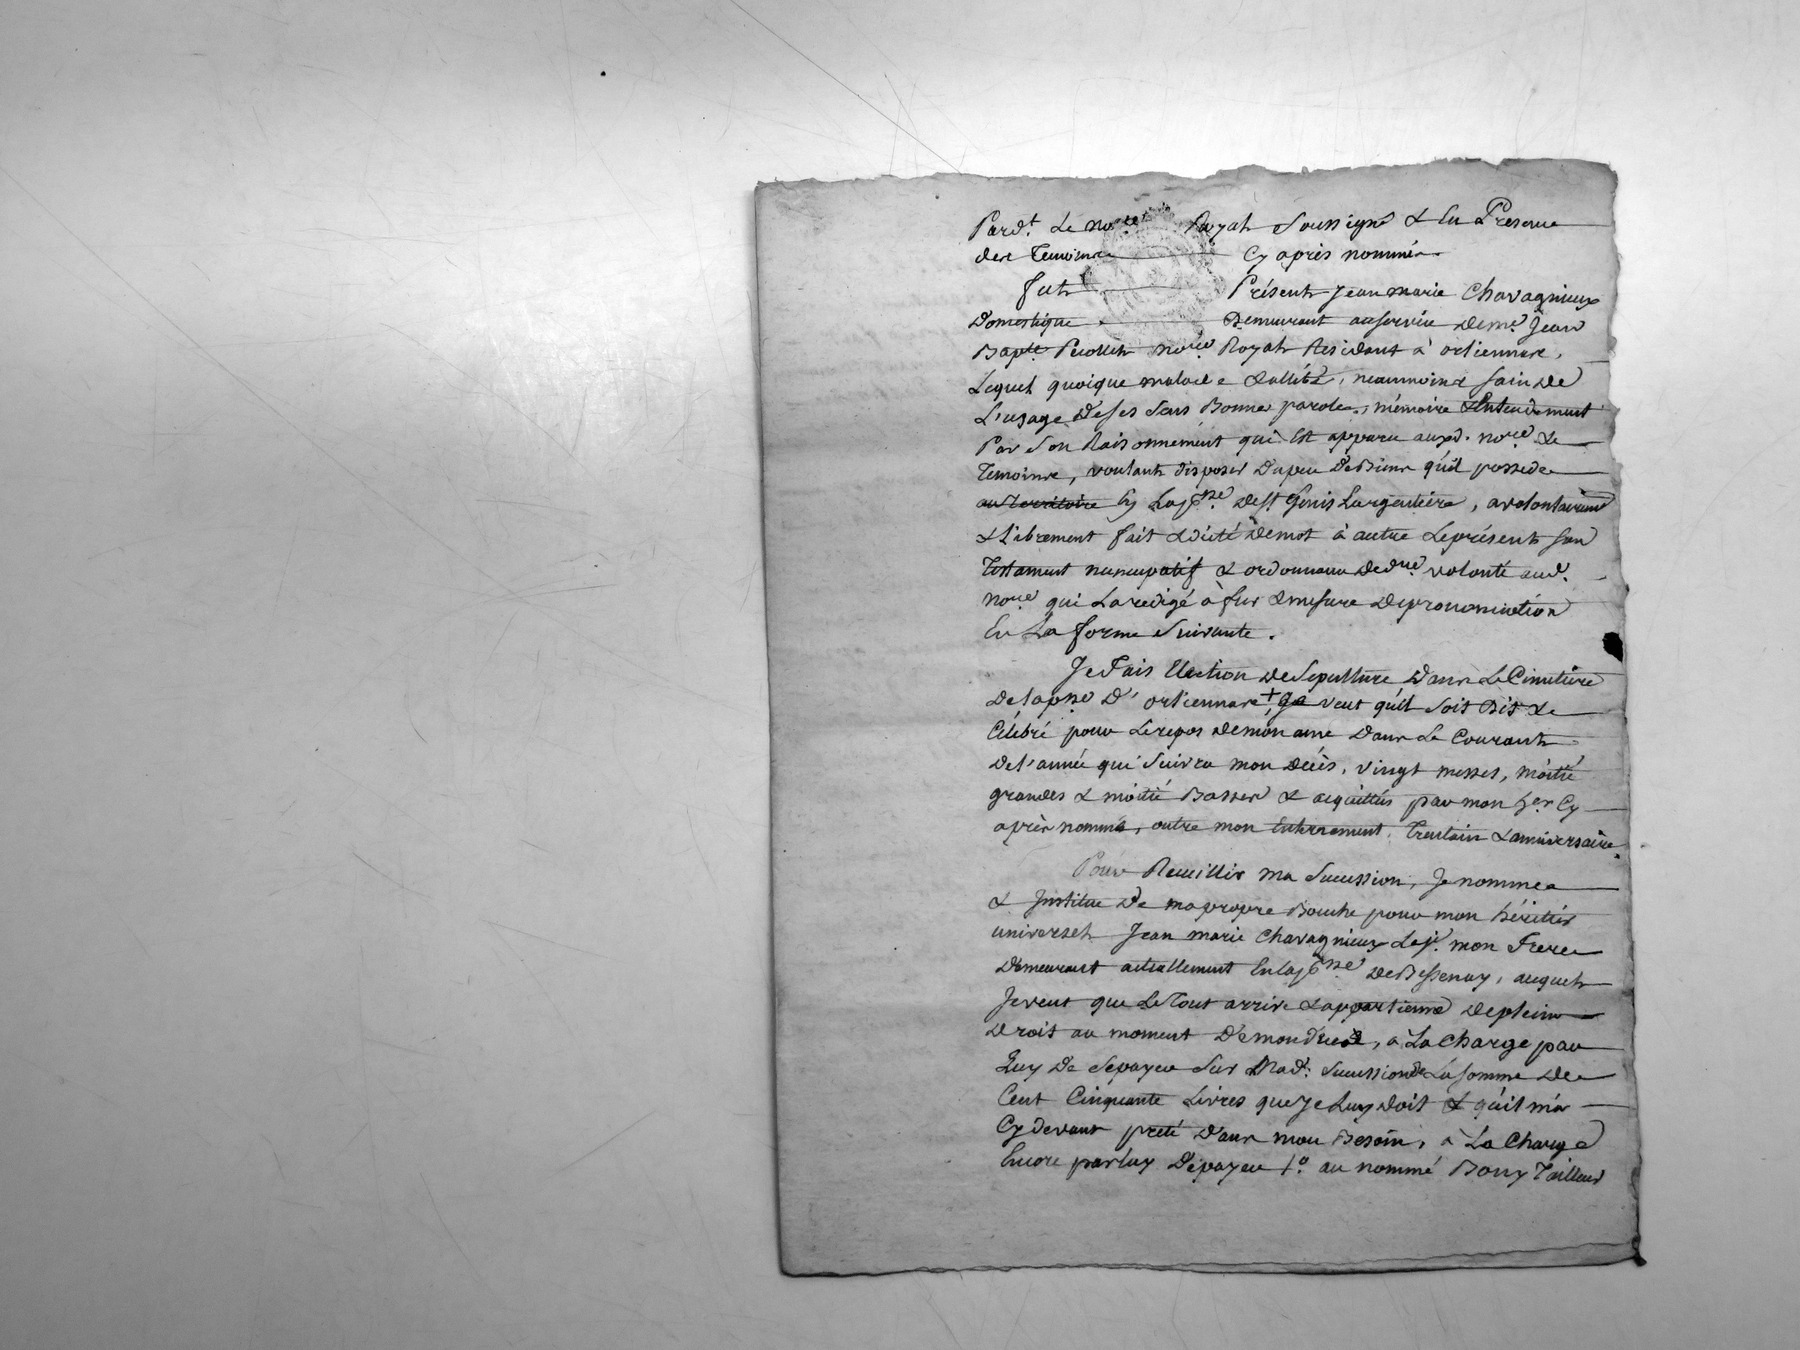 Pard.t Le no.re Royal Soussigné & En Presence
des Temoins Cy après nommés
fut Présent Jean marie Chavagnieux
Domestique Demeurant au Service de me. Jean
Bapte. Perollet no.re Royal Residant à orliennas,
Lequel quoique malade & allité, neanmoins sain de
L'usage de ses Sens Bonne parole, mémoire & Entendement
Par Son Raisonnement qui Est apparu auxd. no.re &
Temoins, voulant disposer du peu de Biens qu'il possede
au Territoire En La psse. de St Genis Largentière, a volontairemt
& Librement fait & dicté de mot à autre Le présent son
Testament nuncupatif & ordonnance de dre. volonté aud.
no.re qui La redigé à fur & mesure de prononciation
En La forme Suivante.
Je Fais Election de Sepulture dans Le Cimetière
de la psse D'orliennas +, Je veut qu'il Soit Dit &
Célébré pour Le repos de mon ame Dans Le Courant
de l'année qui Suivra mon décès, vingt messes, moitié
grandes & moitié Basses & acquittés par mon her. Cy
après nommé, outre mon Enterrement, Trentain & anniversaire.
Pour Recueillir ma Succession, Je nomme
& Institue De ma propre Bouche pour mon héritier
universel Jean marie Chavagnieux Le j. mon Frere
Demeurant actuellement En la psse de Bessenay, auquel
Je veut que Le Tout arrive & appartienne de plein
Droit au moment de mon décès, à La Charge par
Luy De Se payer Sur Mad. Succession de La somme de
Cent Cinquante Livres que Je Luy doit & qu'il m'a
Cy devant preté dans mon Besoin, à La Charge
Encore par luy De payer 1.o au nommé Bony Tailleur